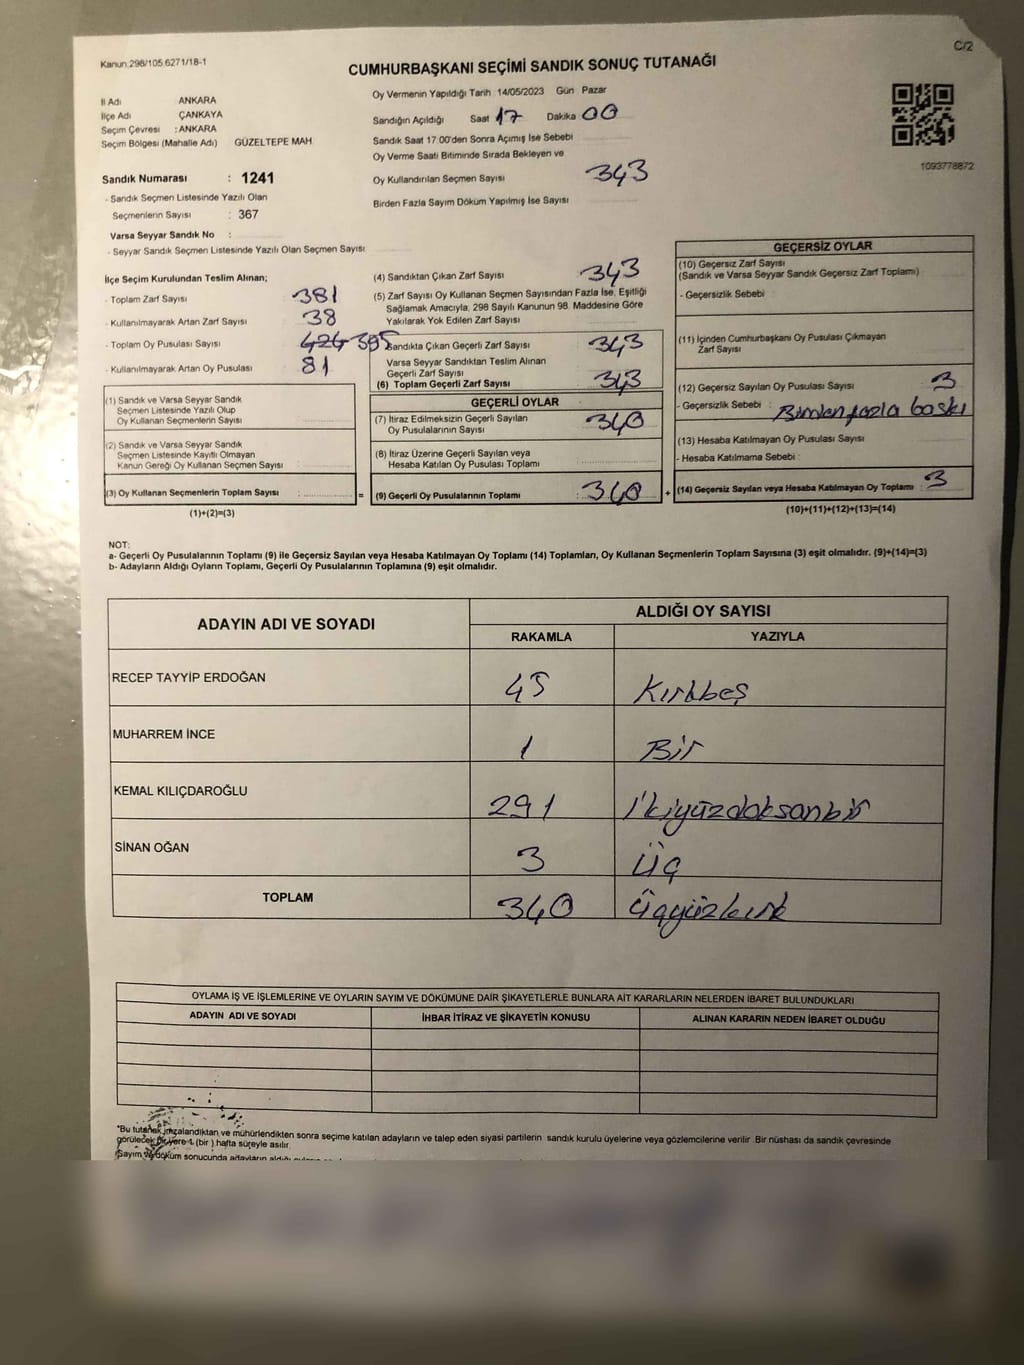 Kanun:298/105.6271/18-1
C/2
CUMHURBAŞKANI SEÇİMİ SANDIK SONUÇ TUTANAĞI
İl Adı ANKARA
İlçe Adı ÇANKAYA
Seçim Çevresi : ANKARA
Seçim Bölgesi (Mahalle Adı) GÜZELTEPE MAH
Sandık Numarası : 1241
- Sandık Seçmen Listesinde Yazılı Olan
Seçmenlerin Sayısı : 367
Varsa Seyyar Sandık No :
- Seyyar Sandık Seçmen Listesinde Yazılı Olan Seçmen Sayısı
Oy Vermenin Yapıldığı Tarih 14/05/2023 Gün Pazar
Sandığın Açıldığı Saat 17 Dakika 00
Sandık Saat 17.00'den Sonra Açımış İse Sebebi
Oy Verme Saati Bitiminde Sırada Bekleyen ve
Oy Kullandırılan Seçmen Sayısı 343
Birden Fazla Sayım Döküm Yapılmış İse Sayısı
1093778872
İlçe Seçim Kurulundan Teslim Alınan;
- Toplam Zarf Sayısı 381
- Kullanılmayarak Artan Zarf Sayısı 38
- Toplam Oy Pusulası Sayısı 424 395
- Kullanılmayarak Artan Oy Pusulası 81
(1) Sandık ve Varsa Seyyar Sandık
Seçmen Listesinde Yazılı Olup
Oy Kullanan Seçmenlerin Sayısı :
(2) Sandık ve Varsa Seyyar Sandık
Seçmen Listesinde Kayıtlı Olmayan
Kanun Gereği Oy Kullanan Seçmen Sayısı :
(3) Oy Kullanan Seçmenlerin Toplam Sayısı : =
(1)+(2)=(3)
(4) Sandıktan Çıkan Zarf Sayısı 343
(5) Zarf Sayısı Oy Kullanan Seçmen Sayısından Fazla İse, Eşitliği
Sağlamak Amacıyla, 298 Sayılı Kanunun 98. Maddesine Göre
Yakılarak Yok Edilen Zarf Sayısı
Sandıkta Çıkan Geçerli Zarf Sayısı 343
Varsa Seyyar Sandıktan Teslim Alınan
Geçerli Zarf Sayısı
(6) Toplam Geçerli Zarf Sayısı 343
GEÇERLİ OYLAR
(7) İtiraz Edilmeksizin Geçerli Sayılan
Oy Pusulalarının Sayısı 340
(8) İtiraz Üzerine Geçerli Sayılan veya
Hesaba Katılan Oy Pusulası Toplamı
(9) Geçerli Oy Pusulalarının Toplamı : 340 +
GEÇERSİZ OYLAR
(10) Geçersiz Zarf Sayısı
(Sandık ve Varsa Seyyar Sandık Geçersiz Zarf Toplamı)
- Geçersizlik Sebebi
(11) İçinden Cumhurbaşkanı Oy Pusulası Çıkmayan
Zarf Sayısı
(12) Geçersiz Sayılan Oy Pusulası Sayısı 3
- Geçersizlik Sebebi : Birden fazla baskı
(13) Hesaba Katılmayan Oy Pusulası Sayısı
- Hesaba Katılmama Sebebi :
(14) Geçersiz Sayılan veya Hesaba Katılmayan Oy Toplamı 3
(10)+(11)+(12)+(13)=(14)
NOT:
a- Geçerli Oy Pusulalarının Toplamı (9) ile Geçersiz Sayılan veya Hesaba Katılmayan Oy Toplamı (14) Toplamları, Oy Kullanan Seçmenlerin Toplam Sayısına (3) eşit olmalıdır. (9)+(14)=(3)
b- Adayların Aldığı Oyların Toplamı, Geçerli Oy Pusulalarının Toplamına (9) eşit olmalıdır.
ADAYIN ADI VE SOYADI ALDIĞI OY SAYISI
RAKAMLA YAZIYLA
RECEP TAYYİP ERDOĞAN 45 Kırkbeş
MUHARREM İNCE 1 Bir
KEMAL KILIÇDAROĞLU 291 İkiyüzdoksanbir
SİNAN OĞAN 3 Üç
TOPLAM 340 Üçyüzkırk
OYLAMA İŞ VE İŞLEMLERİNE VE OYLARIN SAYIM VE DÖKÜMÜNE DAİR ŞİKAYETLERLE BUNLARA AİT KARARLARIN NELERDEN İBARET BULUNDUKLARI
ADAYIN ADI VE SOYADI İHBAR İTİRAZ VE ŞİKAYETİN KONUSU ALINAN KARARIN NEDEN İBARET OLDUĞU
*Bu tutanak imzalandıktan ve mühürlendikten sonra seçime katılan adayların ve talep eden siyasi partilerin sandık kurulu üyelerine veya gözlemcilerine verilir. Bir nüshası da sandık çevresinde
görülecek bir yere 1 (bir ) hafta süreyle asılır.
Sayım ve döküm sonucunda adayların aldığı